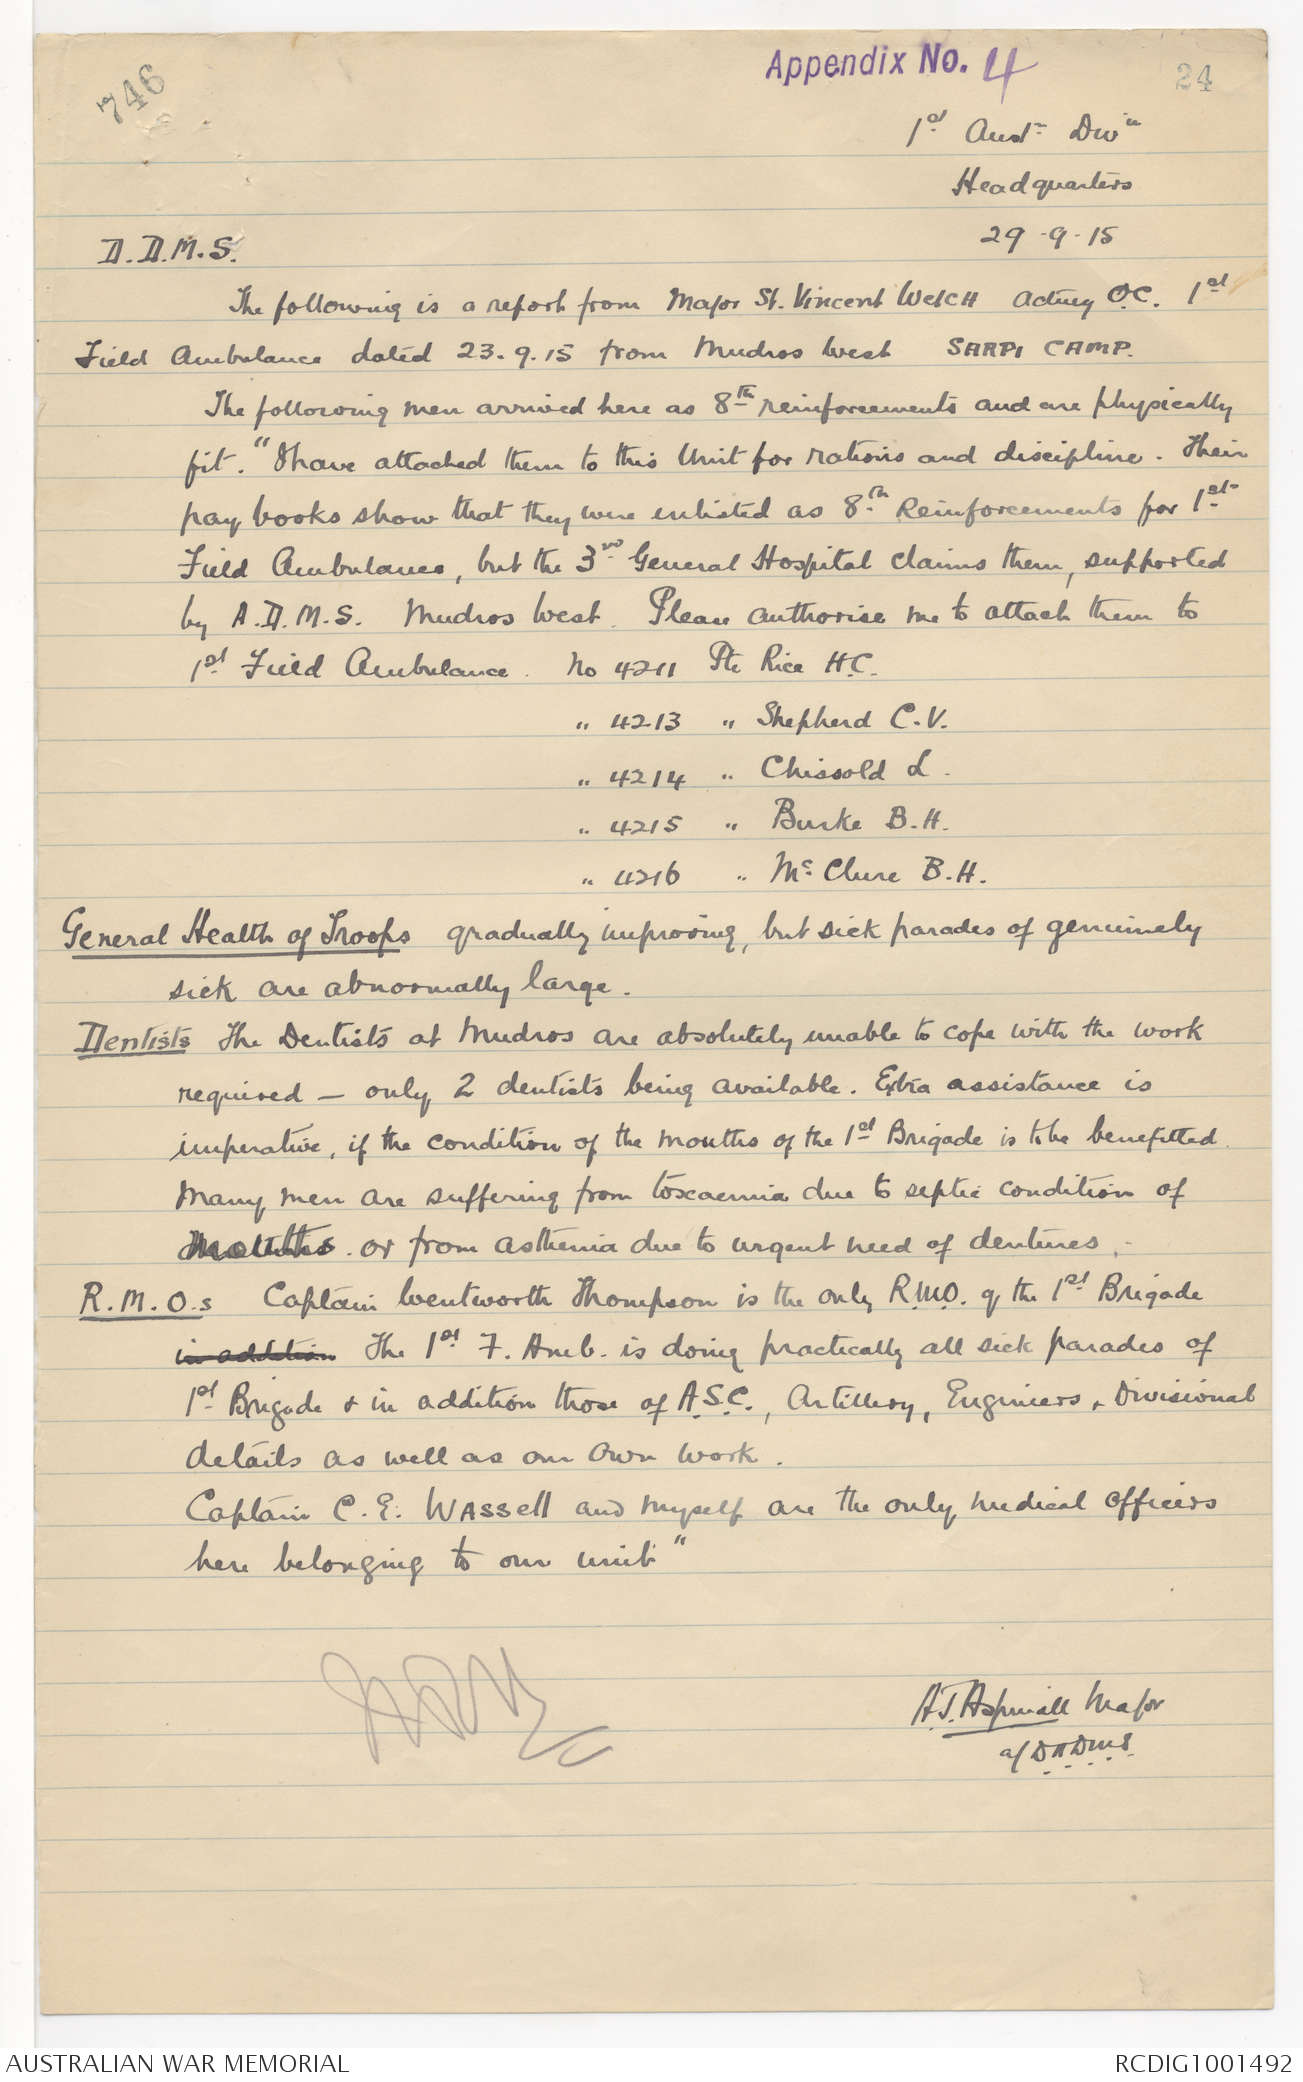 746
Appendix No. 4
24
1st Aust- Divn
Headquarters
29-9-15
D.D.M.S.
The following is a report from Major St. Vincent Welch acting O.C. 1st
Field Ambulance dated 23.9.15 from Mudros West SARPI CAMP.
The following men arrived here as 8th reinforcements and are physically
fit. "I have attached them to this Unit for rations and discipline. Their
pay books show that they were enlisted as 8th Reinforcements for 1st
Field Ambulance, but the 3rd General Hospital claims them, supported
by A.D.M.S. Mudros West. Please authorise me to attach them to
1st Field Ambulance. No 4211 Pte Rice H.C.
" 4213 " Shepherd C.V.
" 4214 " Chissold L.
" 4215 " Burke B.H.
" 4216 " Mc Clure B.H.
General Health of Troops gradually improving, but sick parades of genuinely
sick are abnormally large.
Dentists The Dentists at Mudros are absolutely unable to cope with the work
required – only 2 dentists being available. Extra assistance is
imperative, if the condition of the mouths of the 1st Brigade is to be benefitted.
Many men are suffering from toxaemia due to septic condition of
mouths or from asthenia due to urgent need of dentures.
R.M.O.s Captain Wentworth Thompson is the only R.M.O. of the 1st Brigade
in addition The 1st F. Amb. is doing practically all sick parades of
1st Brigade & in addition those of A.S.C., Artillery, Engineers, & Divisional
details as well as our own work.
Captain C.E. Wassell and myself are the only medical officers
here belonging to our unit"
A.J. Aspinall Major
a/ DADMS.
AUSTRALIAN WAR MEMORIAL
RCDIG1001492